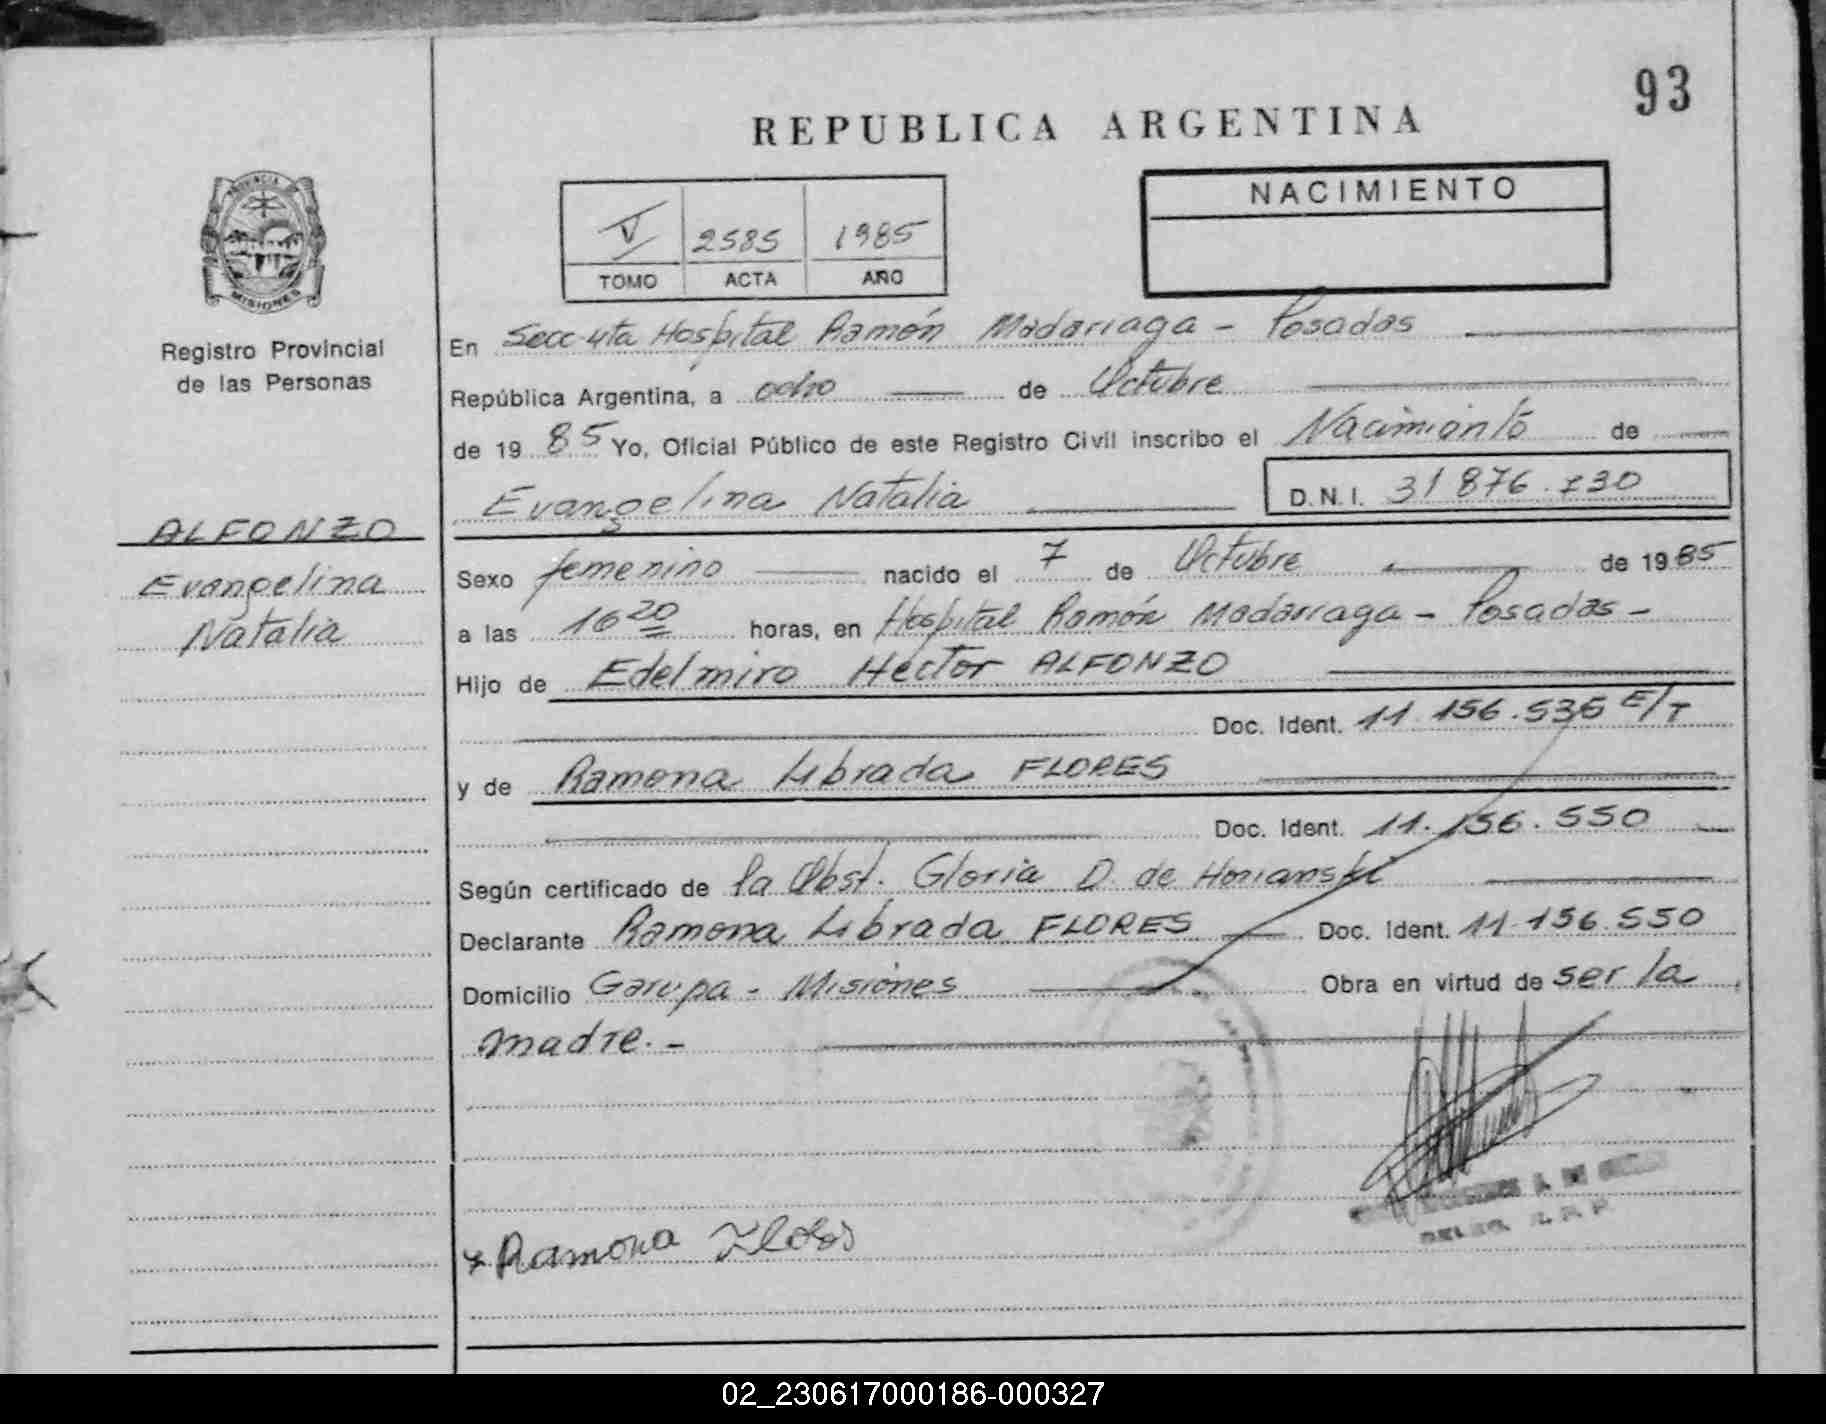 93
REPUBLICA ARGENTINA
PROVINCIA DE
MISIONES
Registro Provincial
de las Personas
V 2585 1985
TOMO ACTA AÑO
NACIMIENTO
En Secc 4ta Hospital Ramón Madariaga - Posadas
República Argentina, a ocho de Octubre
de 1985 Yo, Oficial Público de este Registro Civil inscribo el Nacimiento de
Evangelina Natalia
D.N.I. 31 876.730
ALFONZO
Evangelina
Natalia
Sexo femenino nacido el 7 de Octubre de 1985
a las 16 20 horas, en Hospital Ramón Madariaga - Posadas -
Hijo de Edelmiro Hector ALFONZO
Doc. Ident. 11.156.536 E/T
y de Ramona Librada FLORES
Doc. Ident. 11.156.550
Según certificado de la Obst. Gloria D. de
Declarante Ramona Librada FLORES Doc. Ident. 11.156.550
Domicilio Garupa - Misiones Obra en virtud de ser la
madre. -
x Ramona Flores
02_230617000186-000327